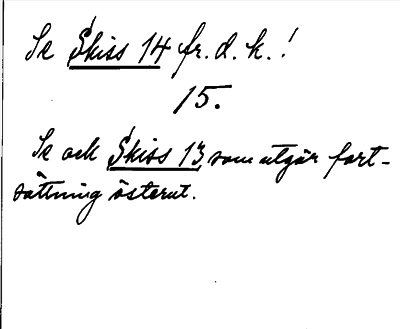 Se Skiss 14 fr. d. k.!
15.
Se ock Skiss 13, som utgör fort-
sättning österut.